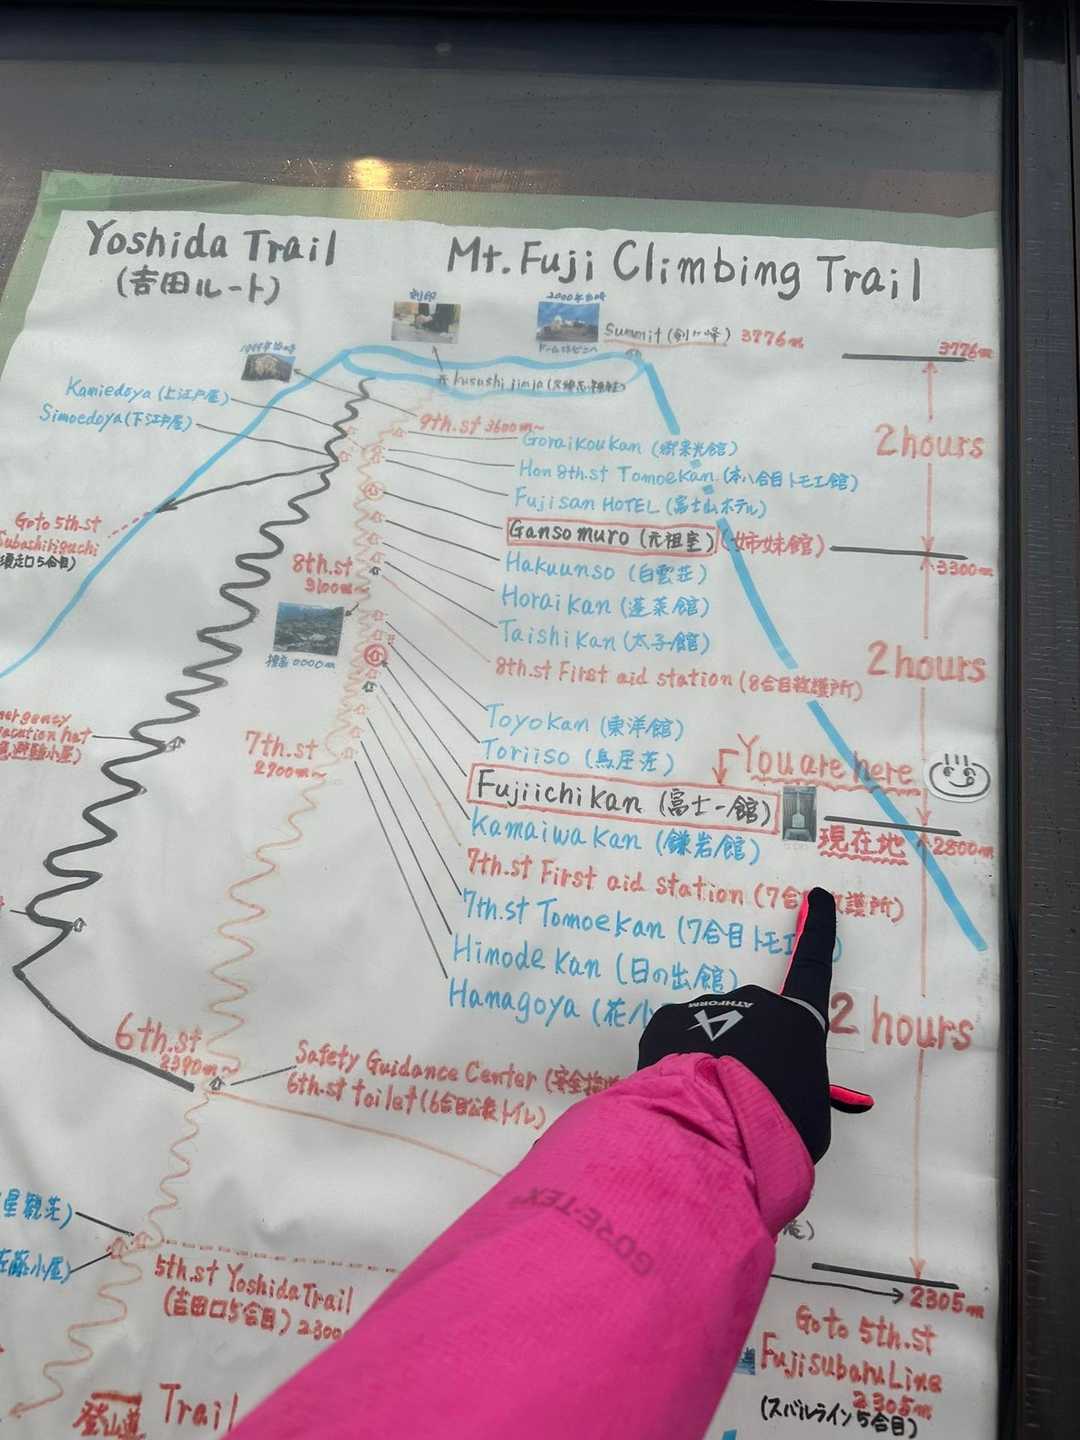 Yoshida Trail
(吉田ルート)
Mt. Fuji Climbing Trail
刻印
Summit (剣ヶ峰) 3776m
3776m
kusushi jinja
Kamiedoya (上江戸屋)
Simoedoya (下江戸屋)
9th.st 3600m~
Goraikoukan (御来光館)
2 hours
Hon 8th.st Tomoekan (本八合目トモエ館)
Fujisan HOTEL (富士山ホテル)
Go to 5th.st
Subashiriguchi
須走口5合目)
Gansomuro (元祖室) (姉妹館)
3300m
8th.st
3100m~
Hakuunso (白雲荘)
Horaikan (蓬莱館)
Taishikan (太子館)
2 hours
8th.st First aid station (8合目救護所)
Toyokan (東洋館)
Toriiso (鳥居荘)
7th.st
2700m~
You are here
Fujiichikan (富士一館)
現在地
2800m
Kamaiwakan (鎌岩館)
7th.st First aid station (7合 救護所)
7th.st Tomoekan (7合目トモエ
Hinodekan (日の出館)
Hanagoya (花小
2 hours
6th.st
2390m~
Safety Guidance Center (安全指
6th.st toilet (6合目公衆トイレ)
ATHFORM
GORE-TEX
星観荘)
佐藤小屋)
5th.st Yoshida Trail
(吉田口5合目) 2300
2305m
Go to 5th.st
Fujisubaru Line
2305m
(スバルライン5合目)
登山道 Trail